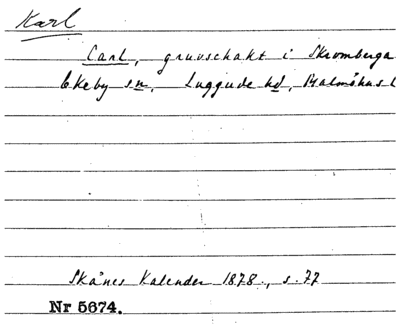 Karl
Carl, gruvschakt i Skromberga
Ekeby sn, Luggude hd, Malmöhus l
Skånes Kalender 1878., s. 77
Nr 5674.